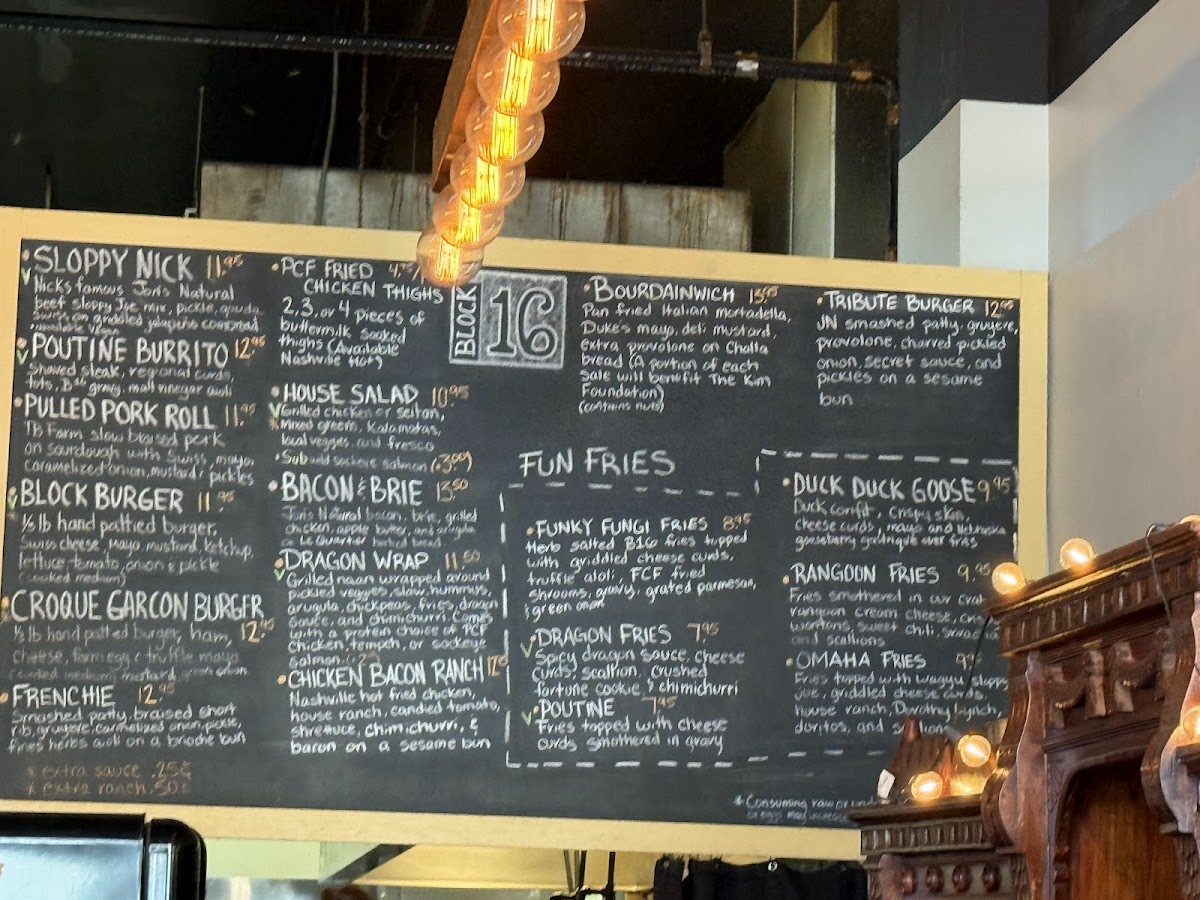 SLOPPY NICK 11.95
Nicks famous Jon's Natural
beef sloppy Joe mix, pickle, gouda
swiss on griddled jalapeño cornbread
available vegan
POUTINE BURRITO 12.95
Shaved steak, regional curds,
tots, B16 gravy, malt vinegar aioli
PULLED PORK ROLL 11.95
TD Farm slow braised pork
on sourdough with Swiss, mayo,
caramelized onion, mustard, pickles
BLOCK BURGER 11.95
1/3 lb hand pattied burger,
Swiss cheese, Mayo, mustard, ketchup
lettuce, tomato, onion & pickle
(cooked medium)
CROQUE GARCON BURGER
1/3 lb hand pattied burger, ham, 12.95
cheese, farm egg, truffle mayo
(cooked medium) mustard,
FRENCHIE 12.95
Smashed patty, braised short
rib, gruyere, carmelized onion, pickle,
fines herbs aioli on a brioche bun
* extra sauce .25¢
* extra ranch .50¢
PCF FRIED 4.75/
CHICKEN THIGHS
2, 3, or 4 pieces of
buttermilk soaked
thighs (Available
Nashville Hot)
HOUSE SALAD 10.95
Grilled chicken or seitan,
Mixed greens, Kalamatas,
local veggies, and fresco
Sub wild sockeye salmon (+3.00)
BACON & BRIE 13.50
Jon's Natural bacon, brie, grilled
chicken, apple butter, and arugula
on Le Quartier
DRAGON WRAP 11.50
Grilled naan wrapped around
pickled veggies, slaw, hummus,
arugula, chickpeas, fries, dragon
sauce, and chimichurri. Comes
with a protein choice of PCF
Chicken, tempeh, or sockeye
Salmon
CHICKEN BACON RANCH 12
Nashville hot fried chicken,
house ranch, candied tomato,
shrettuce, chimichurri, &
bacon on a sesame bun
BLOCK 16
BOURDAINWICH 13.95
Pan fried Italian mortadella,
Duke's mayo, deli mustard,
extra provolone on Challa
bread (A portion of each
Sale will benefit The Kim
Foundation)
(contains nuts)
TRIBUTE BURGER 12.95
JN smashed patty, gruyere,
provolone, charred pickled
onion, secret sauce, and
pickles on a sesame
bun
FUN FRIES
FUNKY FUNGI FRIES 8.95
Herb salted B16 fries topped
with griddled cheese curds,
truffle aioli, FCF fried
shrooms, gravy, grated parmesan,
& green onion
DRAGON FRIES 7.95
Spicy dragon sauce, cheese
curds, scallion, crushed
fortune cookie, & chimichurri
POUTINE 7.95
Fries topped with cheese
curds smothered in gravy
DUCK DUCK GOOSE 9.95
Duck confit, crispy skin,
cheese curds, mayo and Nebraska
gooseberry gastrique over fries
RANGOON FRIES 9.95
Fries smothered in our crab
rangoon cream cheese,
wontons, sweet chili,
and scallions
OMAHA FRIES
Fries topped with wagyu
joe, griddled cheese curds,
house ranch, Dorothy Lynch,
doritos, and
* Consuming raw or
or eggs may increase